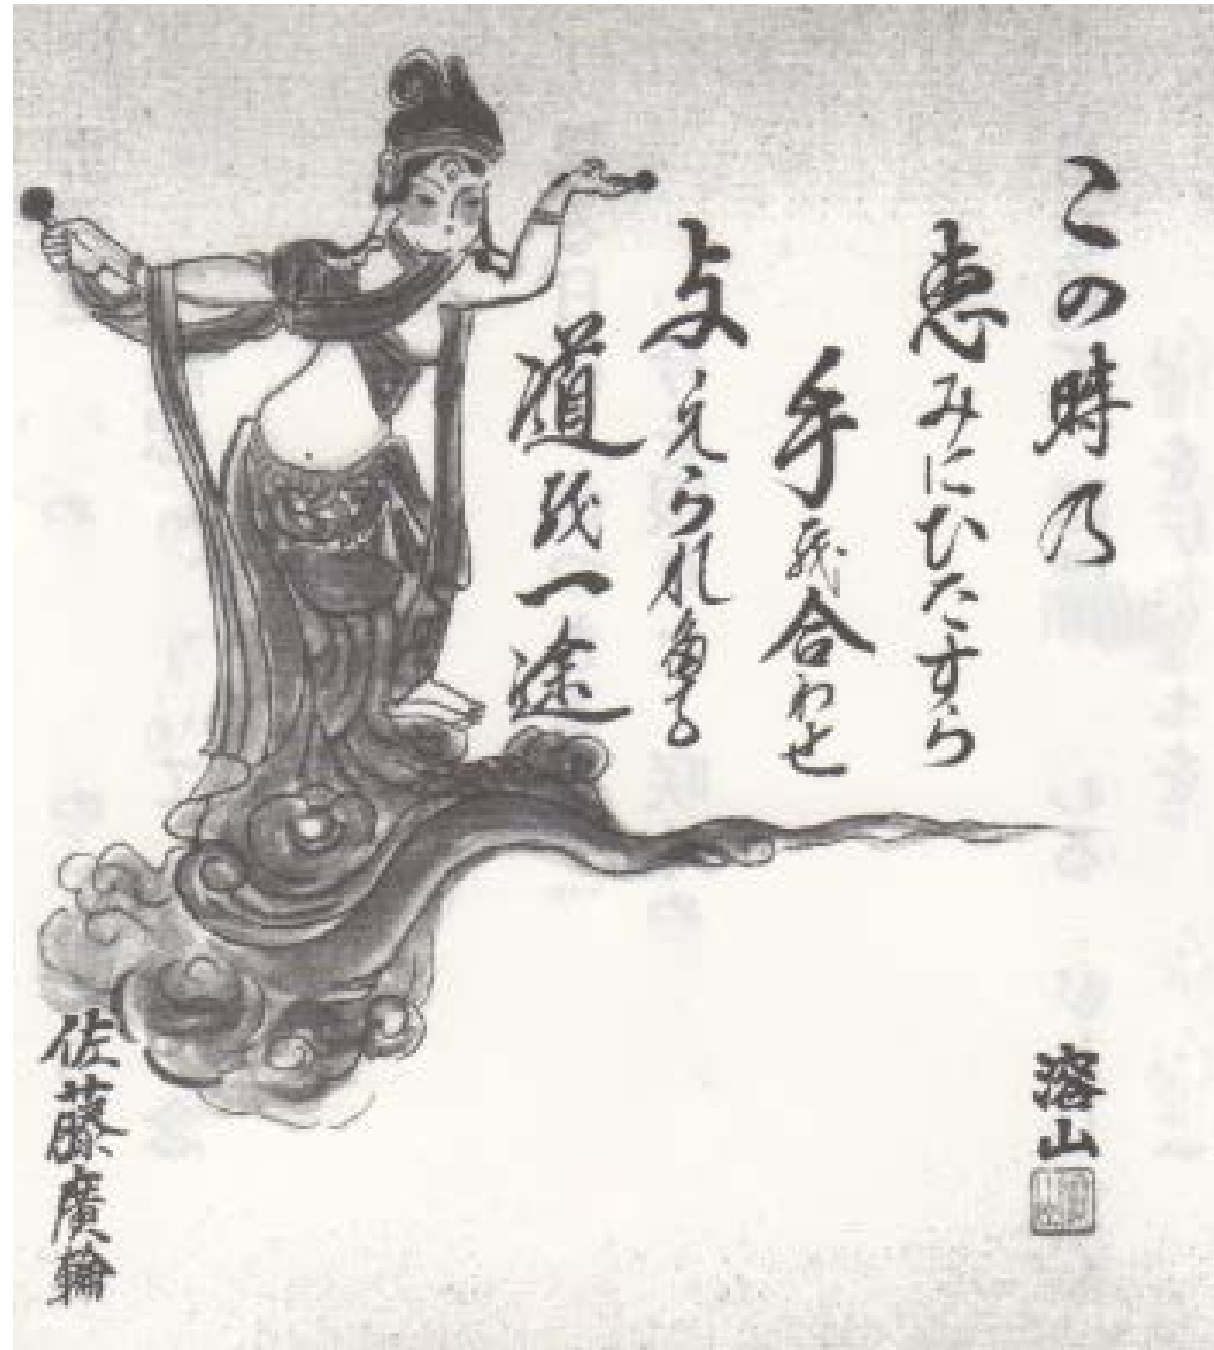 この時乃
恵みにひたすら
手を合わせ
与えられたる
道を一途
溶山
佐藤廣輪